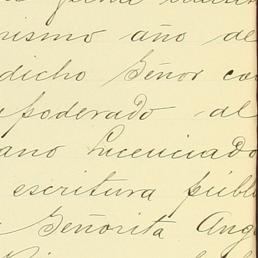 mismo año de
dicho Señor co
poderado al
ano Licenciado
escritura públ
Señorita Ang